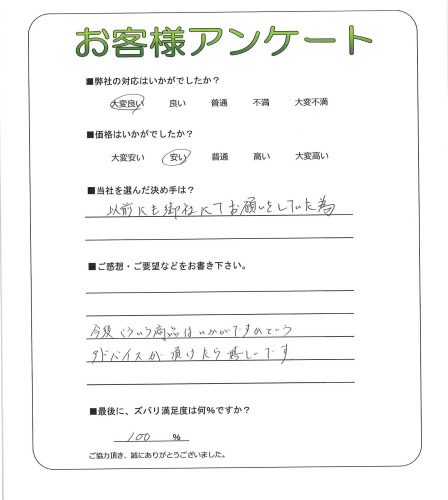 お客様アンケート
■弊社の対応はいかがでしたか?
大変良い 良い 普通 不満 大変不満
■価格はいかがでしたか?
大変安い 安い 普通 高い 大変高い
■当社を選んだ決め手は?
以前にも御社にてお願いをしていた為
■ご感想・ご要望などをお書き下さい。
今後こういう商品はいかがですかという
アドバイスが頂けたら嬉しいです
■最後に、ズバリ満足度は何%ですか?
100 %
ご協力頂き、誠にありがとうございました。